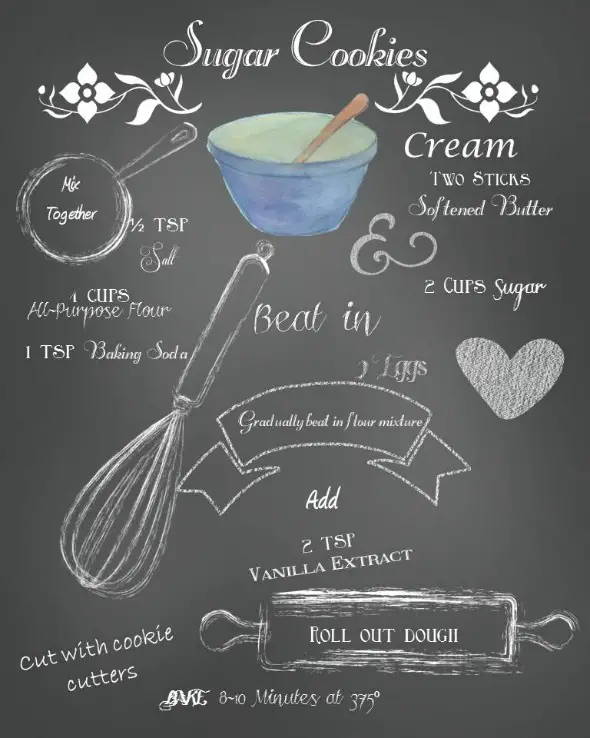 Sugar Cookies
Mix
Together
½ TSP
Salt
CUPS
All-Purpose Flour
1 TSP Baking Soda
Cream
Two Sticks
Softened Butter
&
2 Cups Sugar
Beat in
Eggs
Gradually beat in flour mixture
Add
2 TSP
Vanilla Extract
Roll out dough
Cut with cookie
cutters
BAKE 8-10 Minutes at 375º